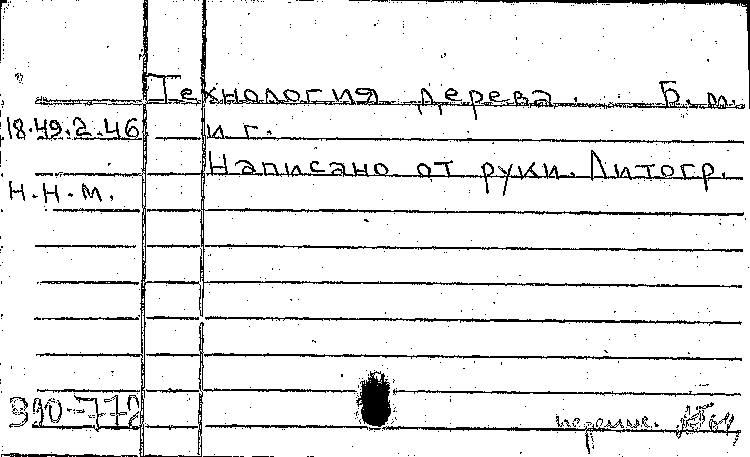 Технология дерева. Б.м.
18.49.2.46 и г.
Написано от руки. Литогр.
Н.Н.М.
390-772